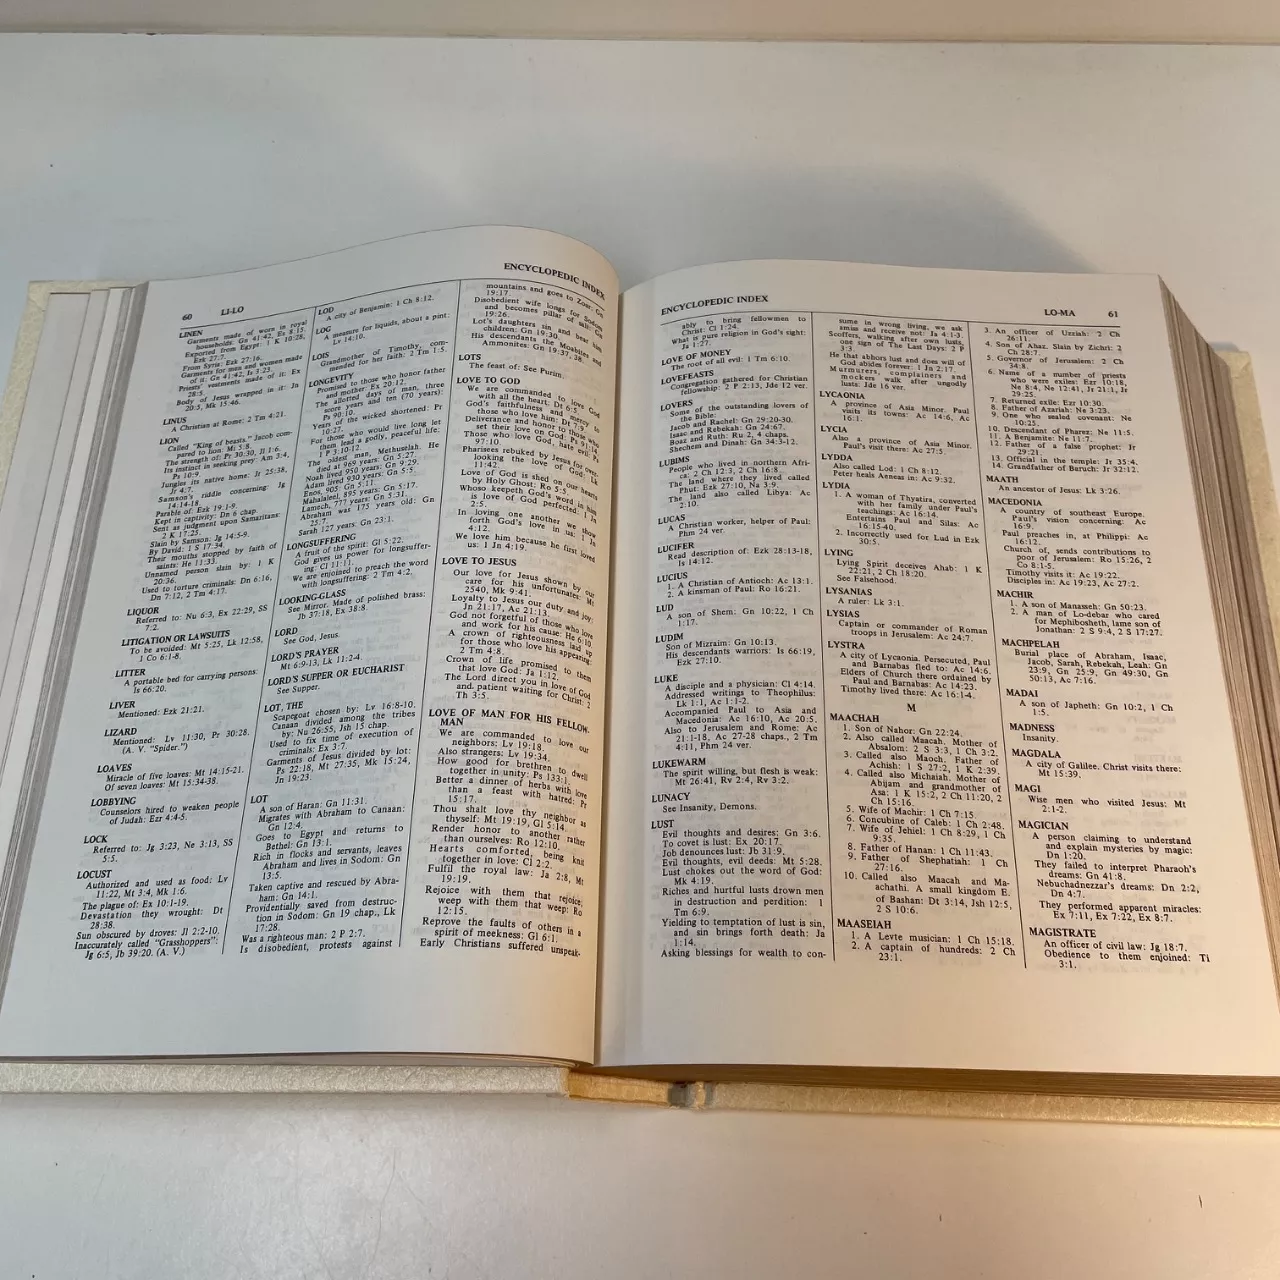 60 LI-LO ENCYCLOPEDIC INDEX
LINEN
Garments made of worn in royal
households: Gn 41:42, Es 8:15.
Exported from Egypt: 1 K 10:28,
Ezk 27:7.
From Syria: Ezk 27:16.
Garments for men and women made
of it: Gn 41:42, Is 3:23.
Priests' vestments made of it: Ex
28:5.
Body of Jesus wrapped in it: Jn
20:5, Mk 15:46.
LINUS
A Christian at Rome: 2 Tm 4:21.
LION
Called "King of beasts." Jacob com-
pared to lion: Mi 5:8.
The strength of: Pr 30:30, Jl 1:6.
Its instinct in seeking prey: Am 3:4,
Ps 10:9.
Jungles its native home: Jr 25:38,
Jr 4:7.
Samson's riddle concerning: Jg
14:14-18.
Parable of: Ezk 19:1-9.
Kept in captivity: Dn 6 chap.
Sent as judgment upon Samaritans:
2 K 17:25.
Slain by Samson: Jg 14:5-9.
By David: 1 S 17:34.
Their mouths stopped by faith of
saints: He 11:33.
Unnamed person slain by: 1 K
20:36.
Used to torture criminals: Dn 6:16,
Dn 7:12, 2 Tm 4:17.
LIQUOR
Referred to: Nu 6:3, Ex 22:29, SS
7:2.
LITIGATION OR LAWSUITS
To be avoided: Mt 5:25, Lk 12:58,
1 Co 6:1-8.
LITTER
A portable bed for carrying persons:
Is 66:20.
LIVER
Mentioned: Ezk 21:21.
LIZARD
Mentioned: Lv 11:30, Pr 30:28.
(A. V. "Spider.")
LOAVES
Miracle of five loaves: Mt 14:15-21.
Of seven loaves: Mt 15:34-38.
LOBBYING
Counselors hired to weaken people
of Judah: Ezr 4:4-5.
LOCK
Referred to: Jg 3:23, Ne 3:13, SS
5:5.
LOCUST
Authorized and used as food: Lv
11:22, Mt 3:4, Mk 1:6.
The plague of: Ex 10:1-19.
Devastation they wrought: Dt
28:38.
Sun obscured by droves: Jl 2:2-10.
Inaccurately called "Grasshoppers":
Jg 6:5, Jb 39:20. (A. V.)
LOD
A city of Benjamin: 1 Ch 8:12.
LOG
A measure for liquids, about a pint:
Lv 14:10.
LOIS
Grandmother of Timothy, com-
mended for her faith: 2 Tm 1:5.
LONGEVITY
Promised to those who honor father
and mother: Ex 20:12.
The allotted days of man, three
score years and ten (70 years):
Ps 90:10.
Years of the wicked shortened: Pr
10:27.
For those who would live long let
them lead a godly, peaceful life:
1 P 3:10-12.
The oldest man, Methuselah. He
died at 969 years: Gn 5:27.
Noah lived 950 years: Gn 9:29.
Adam lived 930 years: Gn 5:5.
Enos, 905: Gn 5:11.
Mahalaleel, 895 years: Gn 5:17.
Lamech, 777 years: Gn 5:31.
Abraham was 175 years old: Gn
25:7.
Sarah 127 years: Gn 23:1.
LONGSUFFERING
A fruit of the spirit: Gl 5:22.
God gives us power for longsuffer-
ing: Cl 1:11.
We are enjoined to preach the word
with longsuffering: 2 Tm 4:2.
LOOKING-GLASS
See Mirror. Made of polished brass:
Jb 37:18, Ex 38:8.
LORD
See God, Jesus.
LORD'S PRAYER
Mt 6:9-13, Lk 11:2-4.
LORD'S SUPPER OR EUCHARIST
See Supper.
LOT, THE
Scapegoat chosen by: Lv 16:8-10.
Canaan divided among the tribes
by: Nu 26:55, Jsh 15 chap.
Used to fix time of execution of
criminals: Ex 3:7.
Garments of Jesus divided by lot:
Ps 22:18, Mt 27:35, Mk 15:24,
Jn 19:23.
LOT
A son of Haran: Gn 11:31.
Migrates with Abraham to Canaan:
Gn 12:4.
Goes to Egypt and returns to
Bethel: Gn 13:1.
Rich in flocks and servants, leaves
Abraham and lives in Sodom: Gn
13:5.
Taken captive and rescued by Abra-
ham: Gn 14:1.
Providentially saved from destruc-
tion in Sodom: Gn 19 chap., Lk
17:28.
Was a righteous man: 2 P 2:7.
Is disobedient, protests against
mountains and goes to Zoar: Gn
19:17.
Disobedient wife longs for Sodom
and becomes pillar of salt: Gn
19:26.
Lot's daughters sin and bear him
children: Gn 19:30.
His descendants the Moabites and
Ammonites: Gn 19:37, 38.
LOTS
The feast of: See Purim.
LOVE TO GOD
We are commanded to love God
with all the heart: Dt 6:5.
God's faithfulness and mercy to
those who love him: Dt 7:9.
Deliverance and honor to those who
set their love on God: Ps 91:14.
Those who love God, hate evil: Ps
97:10.
Pharisees rebuked by Jesus for over-
looking the love of God: Lk
11:42.
Love of God is shed on our hearts
by Holy Ghost: Ro 5:5.
Whoso keepeth God's word in him
is love of God perfected: 1 Jn
2:5.
In loving one another we show
forth God's love in us: 1 Jn
4:12.
We love him because he first loved
us: 1 Jn 4:19.
LOVE TO JESUS
Our love for Jesus shown by our
care for his unfortunates: Mt
2540, Mk 9:41.
Loyalty to Jesus our duty and joy:
Jn 21:17, Ac 21:13.
God not forgetful of those who love
and work for his cause: He 6:10.
A crown of righteousness laid up
for those who love his appearing:
2 Tm 4:8.
Crown of life promised to them
that love God: Ja 1:12.
The Lord direct you in love of God
and patient waiting for Christ: 2
Th 3:5.
LOVE OF MAN FOR HIS FELLOW
MAN
We are commanded to love our
neighbors: Lv 19:18.
Also strangers: Lv 19:34.
How good for brethren to dwell
together in unity: Ps 133:1.
Better a dinner of herbs with love
than a feast with hatred: Pr
15:17.
Thou shalt love thy neighbor as
thyself: Mt 19:19, Gl 5:14.
Render honor to another rather
than ourselves: Ro 12:10.
Hearts comforted, being knit
together in love: Cl 2:2.
Fulfil the royal law: Ja 2:8, Mt
19:19.
Rejoice with them that rejoice;
weep with them that weep: Ro
12:15.
Reprove the faults of others in a
spirit of meekness: Gl 6:1.
Early Christians suffered unspeak-
ENCYCLOPEDIC INDEX LO-MA 61
ably to bring fellowmen to
Christ: Cl 1:24.
What is pure religion in God's sight:
Ja 1:27.
LOVE OF MONEY
The root of all evil: 1 Tm 6:10.
LOVEFEASTS
Congregation gathered for Christian
fellowship: 2 P 2:13, Jde 12 ver.
LOVERS
Some of the outstanding lovers of
the Bible:
Jacob and Rachel: Gn 29:20-30.
Isaac and Rebekah: Gn 24:67.
Boaz and Ruth: Ru 2, 4 chaps.
Shechem and Dinah: Gn 34:3-12.
LUBIMS
People who lived in northern Afri-
ca, 2 Ch 12:3, 2 Ch 16:8.
The land where they lived called
Phut: Ezk 27:10, Na 3:9.
The land also called Libya: Ac
2:10.
LUCAS
A Christian worker, helper of Paul:
Phm 24 ver.
LUCIFER
Read description of: Ezk 28:13-18,
Is 14:12.
LUCIUS
1. A Christian of Antioch: Ac 13:1.
2. A kinsman of Paul: Ro 16:21.
LUD
A son of Shem: Gn 10:22, 1 Ch
1:17.
LUDIM
Son of Mizraim: Gn 10:13.
His descendants warriors: Is 66:19,
Ezk 27:10.
LUKE
A disciple and a physician: Cl 4:14.
Addressed writings to Theophilus:
Lk 1:1, Ac 1:1-2.
Accompanied Paul to Asia and
Macedonia: Ac 16:10, Ac 20:5.
Also to Jerusalem and Rome: Ac
21:1-18, Ac 27-28 chaps., 2 Tm
4:11, Phm 24 ver.
LUKEWARM
The spirit willing, but flesh is weak:
Mt 26:41, Rv 2:4, Rv 3:2.
LUNACY
See Insanity, Demons.
LUST
Evil thoughts and desires: Gn 3:6.
To covet is lust: Ex 20:17.
Job denounces lust: Jb 31:9.
Evil thoughts, evil deeds: Mt 5:28.
Lust chokes out the word of God:
Mk 4:19.
Riches and hurtful lusts drown men
in destruction and perdition: 1
Tm 6:9.
Yielding to temptation of lust is sin,
and sin brings forth death: Ja
1:14.
Asking blessings for wealth to con-
sume in wrong living, we ask
amiss and receive not: Ja 4:1-3.
Scoffers, walking after own lusts,
one sign of The Last Days: 2 P
3:3.
He that abhors lust and does will of
God abides forever: 1 Jn 2:17.
Murmurers, complainers and
mockers walk after ungodly
lusts: Jde 16 ver.
LYCAONIA
A province of Asia Minor. Paul
visits its towns: Ac 14:6, Ac
16:1.
LYCIA
Also a province of Asia Minor.
Paul's visit there: Ac 27:5.
LYDDA
Also called Lod: 1 Ch 8:12.
Peter heals Aeneas in: Ac 9:32.
LYDIA
1. A woman of Thyatira, converted
with her family under Paul's
teachings: Ac 16:14.
Entertains Paul and Silas: Ac
16:15-40.
2. Incorrectly used for Lud in Ezk
30:5.
LYING
Lying Spirit deceives Ahab: 1 K
22:21, 2 Ch 18:20.
See Falsehood.
LYSANIAS
A ruler: Lk 3:1.
LYSIAS
Captain or commander of Roman
troops in Jerusalem: Ac 24:7.
LYSTRA
A city of Lycaonia. Persecuted, Paul
and Barnabas fled to: Ac 14:6.
Elders of Church there ordained by
Paul and Barnabas: Ac 14:23.
Timothy lived there: Ac 16:1-4.
M
MAACHAH
1. Son of Nahor: Gn 22:24.
2. Also called Maacah. Mother of
Absalom: 2 S 3:3, 1 Ch 3:2.
3. Called also Maoch. Father of
Achish: 1 S 27:2, 1 K 2:39.
4. Called also Michaiah. Mother of
Abijam and grandmother of
Asa: 1 K 15:2, 2 Ch 11:20, 2
Ch 15:16.
5. Wife of Machir: 1 Ch 7:15.
6. Concubine of Caleb: 1 Ch 2:48.
7. Wife of Jehiel: 1 Ch 8:29, 1 Ch
9:35.
8. Father of Hanan: 1 Ch 11:43.
9. Father of Shephatiah: 1 Ch
27:16.
10. Called also Maacah and Ma-
achathi. A small kingdom E.
of Bashan: Dt 3:14, Jsh 12:5,
2 S 10:6.
MAASEIAH
1. A Levte musician: 1 Ch 15:18.
2. A captain of hundreds: 2 Ch
23:1.
3. An officer of Uzziah: 2 Ch
26:11.
4. Son of Ahaz. Slain by Zichri: 2
Ch 28:7.
5. Governor of Jerusalem: 2 Ch
34:8.
6. Name of a number of priests
who were exiles: Ezr 10:18,
Ne 8:4, Ne 12:41, Jr 21:1, Jr
29:25.
7. Returned exile: Ezr 10:30.
8. Father of Azariah: Ne 3:23.
9. One who sealed covenant: Ne
10:25.
10. Descendant of Pharez: Ne 11:5.
11. A Benjamite: Ne 11:7.
12. Father of a false prophet: Jr
29:21.
13. Official in the temple: Jr 35:4.
14. Grandfather of Baruch: Jr 32:12.
MAATH
An ancestor of Jesus: Lk 3:26.
MACEDONIA
A country of southeast Europe.
Paul's vision concerning: Ac
16:9.
Paul preaches in, at Philippi: Ac
16:12.
Church of, sends contributions to
poor of Jerusalem: Ro 15:26, 2
Co 8:1-5.
Timothy visits it: Ac 19:22.
Disciples in: Ac 19:23, Ac 27:2.
MACHIR
1. A son of Manasseh: Gn 50:23.
2. A man of Lo-debar who cared
for Mephibosheth, lame son of
Jonathan: 2 S 9:4, 2 S 17:27.
MACHPELAH
Burial place of Abraham, Isaac,
Jacob, Sarah, Rebekah, Leah: Gn
23:9, Gn 25:9, Gn 49:30, Gn
50:13, Ac 7:16.
MADAI
A son of Japheth: Gn 10:2, 1 Ch
1:5.
MADNESS
Insanity.
MAGDALA
A city of Galilee. Christ visits there:
Mt 15:39.
MAGI
Wise men who visited Jesus: Mt
2:1-2.
MAGICIAN
A person claiming to understand
and explain mysteries by magic:
Dn 1:20.
They failed to interpret Pharaoh's
dreams: Gn 41:8.
Nebuchadnezzar's dreams: Dn 2:2,
Dn 4:7.
They performed apparent miracles:
Ex 7:11, Ex 7:22, Ex 8:7.
MAGISTRATE
An officer of civil law: Jg 18:7.
Obedience to them enjoined: Ti
3:1.